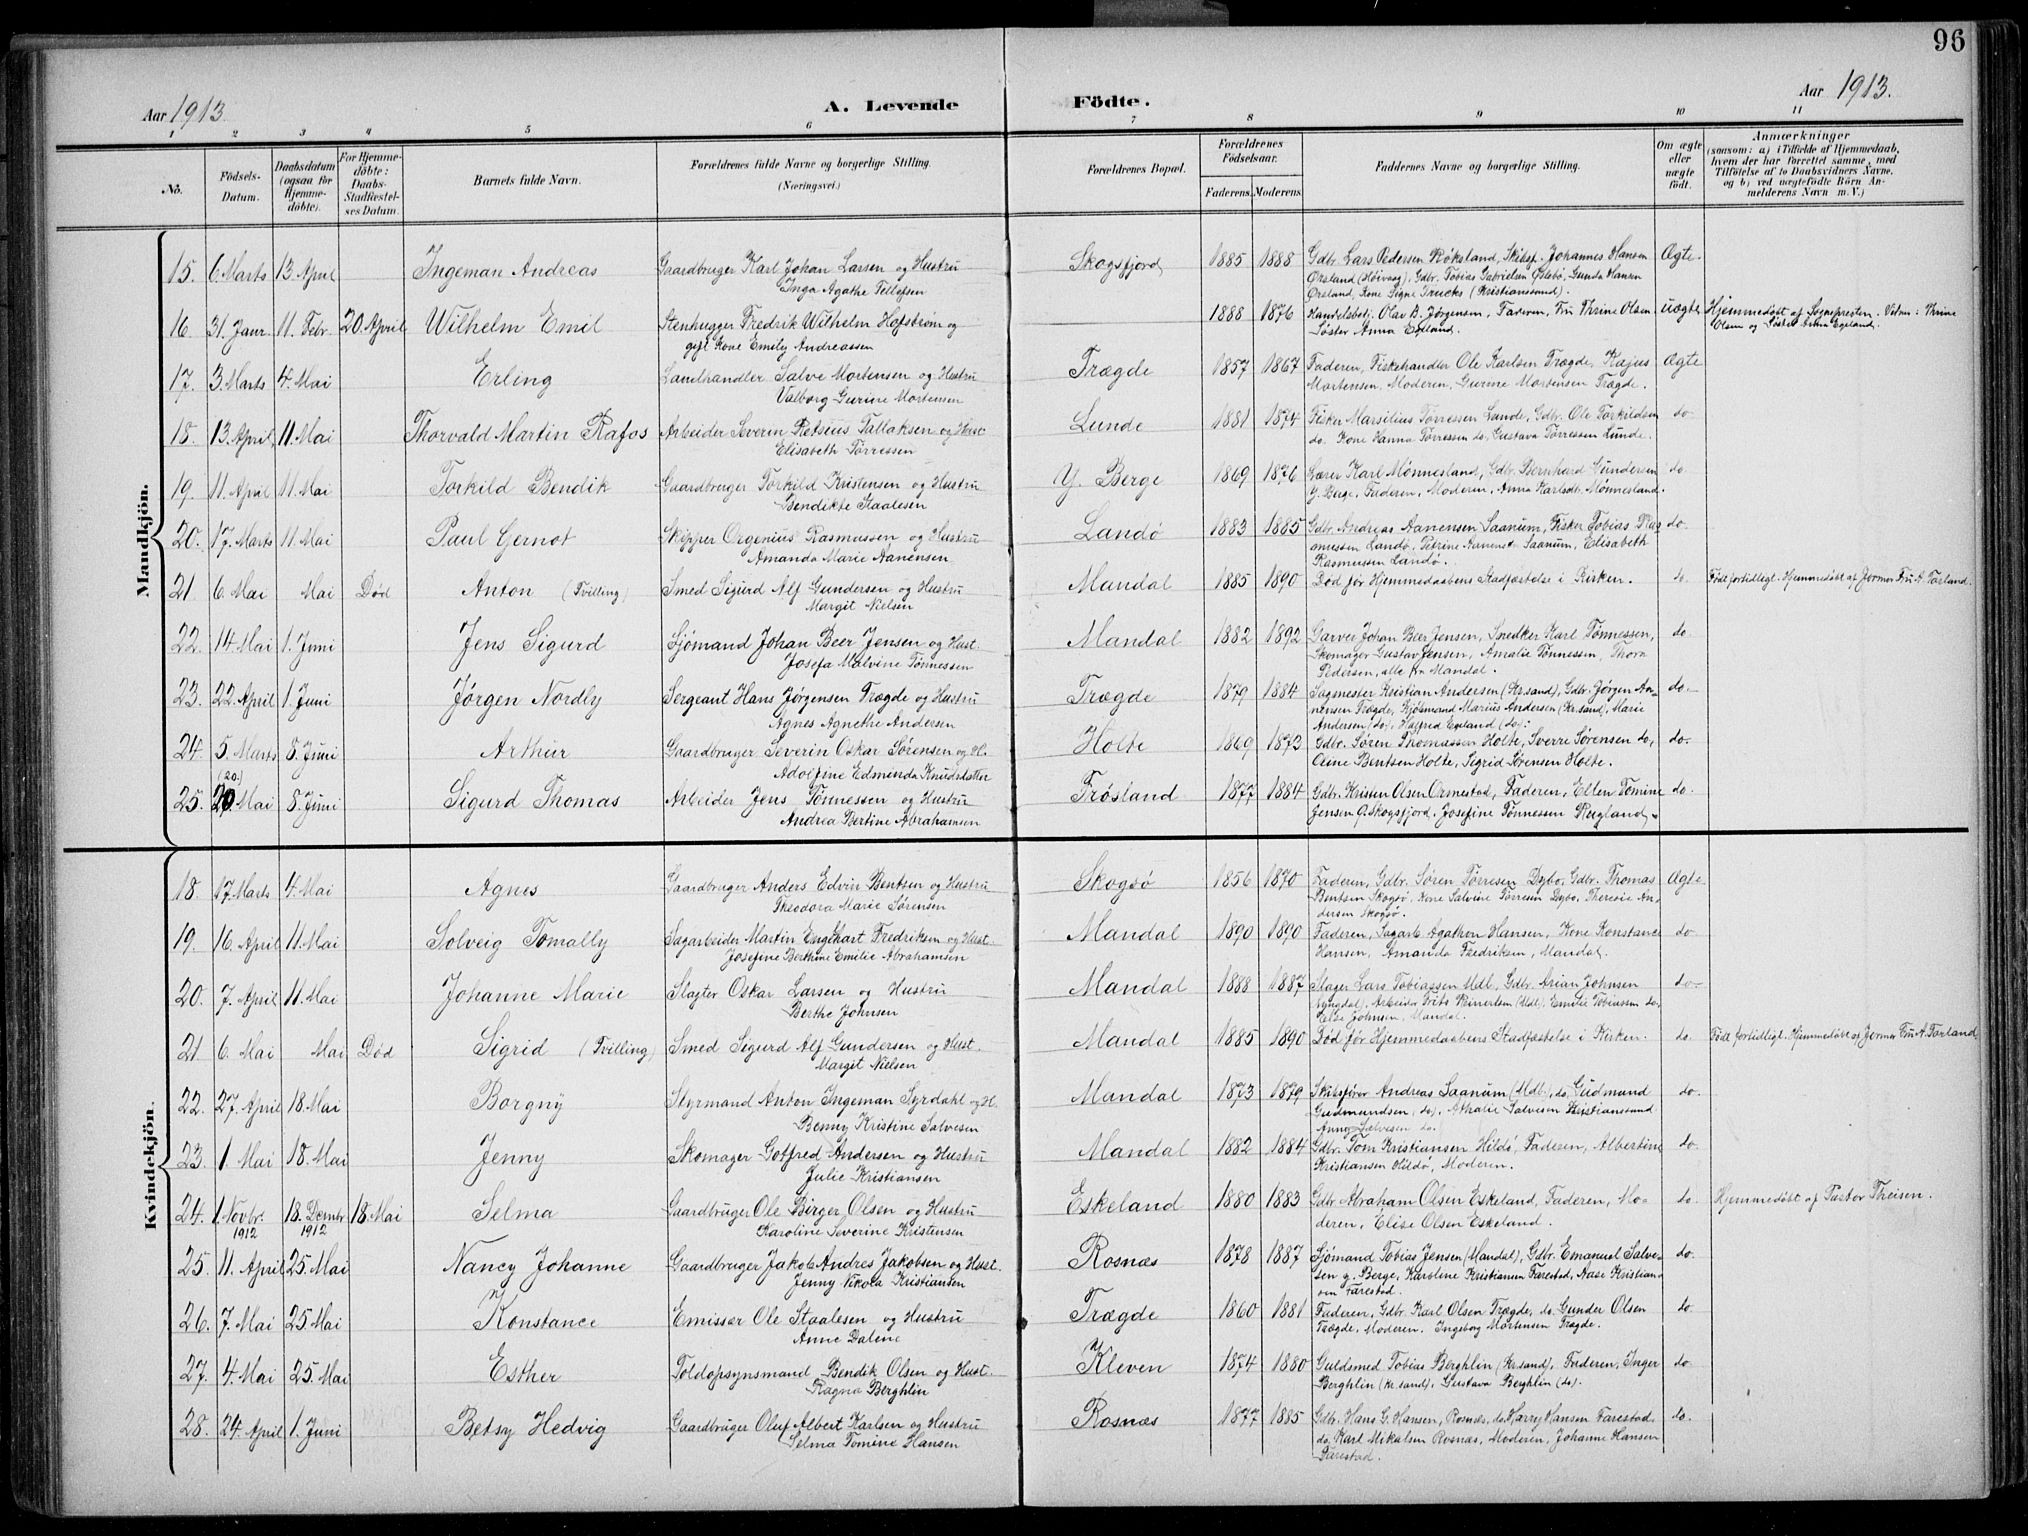 96
Aar 1913. A. Levende Födte. Aar 1913.
1 2 3 4 5 6 7 8 9 10 11
No. Födsels-Datum. Daabsdatum (ogsaa for Hjemme-döbte). For Hjemme-döbte: Daabs-Stadfæstel-ses Datum. Barnets fulde Navn. Forældrenes fulde Navne og borgerlige Stilling. (Næringsvei.) Forældrenes Bopæl. Forældrenes Födselsaar. Faderens. Moderens. Faddernes Navne og borgerlige Stilling. Om ægte eller uægte födt. Anmærkninger (saasom: a) i Tilfælde af Hjemmedaab, hvem der har forrettet samme, med Tilföielse af to Daabsvidners Navne, og b) ved uægtefödte Börn An-melderens Navn m. V.)
Mandkjön.
15. 6. Marts 13. April Ingeman Andreas Gaardbruger Karl Johan Larsen og Hustru Skogsfjord 1885 1888 Gdbr. Lars Pedersen Røksland, Skibsf. Johannes Hansen Ægte
Inga Agathe Tellefsen Ørsland (Höivag), Gdbr. Tobias Gabrielsen Öslebö, Gunda Hansen
Ørsland, Kone Signe Trucks (Kristianssand).
16. 31. Janr. 11. Febr. 20. April Wilhelm Emil Stenhugger Fredrik Wilhelm Hofstrøm og 1888 1876 Handelsbetj. Olav B. Jørgensen, Faderen, Fru Thrine Olsen uægte Hjemmedöbt af Sognepresten. Vidner: Thrine
gift Kone Emily Andreassen Söster Anna Egeland. Olsen og Söster Anna Egeland.
17. 3. Marts 4. Mai Erling Landhandler Salve Mortensen og Hustru Trægde 1857 1867 Faderen, Fiskehandler Ole Karlsen Trægde, Kajus Ægte
Valborg Gurine Mortensen Mortensen, Moderen, Gurine Mortensen Trægde.
18. 13. April 11. Mai Thorvald Martin Rafos Arbeider Severin Retsius Tallaksen og Hust Lunde 1881 1874 Fisker Marsilius Tørressen Lunde, Gdbr. Ole Torkildsen do
Elisabeth Tørressen do. Kone Hanna Tørressen do, Gustava Tørressen Lunde.
19. 11. April 11. Mai Torkild Bendik Gaardbruger Torkild Kristensen og Hustru Y. Berge 1869 1876 Lærer Karl Mønnesland, Gdbr. Bernhard Gundersen do.
Bendikte Staalesen Y. Berge, Faderen, Moderen, Anna Karlsdt. Mønnesland.
20. 17. Marts 11. Mai Paul Gernot Skipper Orgenius Rasmussen og Hustru Landø 1883 1885 Gdbr. Andreas Aanensen Saanum, Fisker Tobias Ras do.
Amanda Marie Aanensen mussen Landø, Petrine Aanensen Saanum, Elisabeth
Rasmussen Landø.
21 6. Mai Mai Død Anton (Tvilling) Smed Sigurd Alf Gundersen og Hustru Mandal 1885 1890 Død før Hjemmedaabens Stadfæstelse i Kirken. do. Født fortidligt. Hjemmedøbt af Jormor Fru A. Torland.
Margit Nielsen
22. 14. Mai 1. Juni Jens Sigurd Sjømand Johan Beer Jensen og Hust. Mandal 1882 1892 Garver Johan Beer Jensen, Snedker Karl Tønnessen, do
Josefa Malvine Tønnessen Skomager Gustav Jensen, Amalie Tønnessen, Thora
Pedersen, alle fra Mandal.
23. 22. April 1. Juni Jørgen Nordly Sergeant Hans Jørgensen Trægde og Hustru Trægde 1879 1884 Sagmester Kristian Andersen (Kr.sand), Gdbr. Jørgen Aa- do.
Agnes Agnethe Andersen nensen Trægde, Sjömand Marius Andersen (Kr.sand), Marie
Andersen (do), Halfrid Egeland (do).
24. 5. Marts 8. Juni Arthur Gaardbruger Severin Oskar Sørensen og H. Holte 1869 1873 Gdbr. Søren Thomassen Holte, Sverre Sørensen do, do.
Adolfine Edminda Knudsdatter Oline Bentsen Holte, Sigrid Sørensen Holte.
(20.)
25. 20 Mai 8. Juni Sigurd Thomas Arbeider Jens Tønnessen og Hustru Frøsland 1877 1884 Gdbr. Kristen Olsen Ormestad, Faderen, Ellen Tomine do.
Andrea Bertine Abrahamsen Jensen Skogsfjord, Josefine Tønnessen Rugland.
Kvindekjön.
18. 17. Marts 4. Mai Agnes Gaardbruger Anders Edvin Bentsen og Hustru Skogsø 1856 1870 Faderen, Gdbr. Søren Tørresen Dybo, Gdbr. Thomas Ægte
Theodora Marie Sørensen Bentsen Skogsø, Kone Salvine Tørresen Dybo, Theresie An
dersen Skogsø.
19. 16. April 11. Mai Solveig Tomally Sagarbeider Martin Engelhart Fredriksen og Hust. Mandal 1890 1890 Faderen, Sagarb. Agathon Hansen, Kone Konstance do
Josefine Berthine Emilie Abrahamsen Hansen, Amanda Fredriksen, Mandal.
20. 7. April 11. Mai Johanne Marie Slagter Oskar Larsen og Hustru Mandal 1888 1887 Slager Lars Tobiassen Mdl, Gdbr. Arian Johnsen do
Berthe Johnsen Lyngdal, Arbeider Frits Reinertsen (Mdl), Emilie Tobiassen do,
Else Johnsen, Mandal.
21 6. Mai Mai Død Sigrid (Tvilling) Smed Sigurd Alf Gundersen og Hust. Mandal 1885 1890 Død før Hjemmedaabens Stadfæstelse i Kirken. do. Født fortidligt. Hjemmedøbt af Jormor Fru A. Torland
Margit Nielsen
22. 27. April 18. Mai Borgny Styrmand Anton Ingeman Syrdahl og H. Mandal 1873 1879 Skibsfører Andreas Saanum (Mdl), do Gudmund do.
Benny Kristine Salvesen Gudmundsen, do), Athalie Salvesen Kristianssand
Anny Salvesen do.
23. 1. Mai 18. Mai Jenny Skomager Gotfred Andersen og Hustru Mandal 1882 1884 Gdbr. Tom Kristiansen Hildø, Faderen, Albertine do.
Julie Kristiansen Kristiansen Hildø, Moderen.
24. 1. Novbr. 18. Dcmbr 18. Mai Selma Gaardbruger Ole Birger Olsen og Hustru Eskeland 1880 1883 Gdbr. Abraham Olsen Eskeland, Faderen, Mo- do. Hjemmedøbt af Pastor Theisen.
1912 1912 Karoline Severine Kristensen deren, Elise Olsen Eskeland.
25. 11. April 25. Mai Nancy Johanne Gaardbruger Jakob Andres Jakobsen og Hust. Rosnæs 1878 1887 Sjømand Tobias Jensen (Mandal), Gdbr. Emanuel Salve- do.
Jenny Nkola Kristiansen sen y. Berge, Karoline Kristiansen Farestad, Aase Kristian
sen Farestad.
26. 7. Mai 25. Mai Konstance Emissær Ole Staalesen og Hustru Trægde 1860 1881 Faderen, Gdbr. Karl Olsen Trægde, do. Gunder Olsen do.
Anne Dalene Trægde, Moderen, Ingeborg Mortensen Trægde.
27. 4. Mai 25. Mai Esther Toldopsynsmand Bendik Olsen og Hust. Kleven 1874 1880 Guldsmed Tobias Berghlin (Kr.sand), Faderen, Inger do
Ragna Berghlin Berghlin (Kr.sand), Gustava Berghlin (do).
28. 24. April 1. Juni Betsy Hedvig Gaardbruger Oluf Albert Karlsen og Hustru Rosnæs 1877 1885 Gdbr. Hans G. Hansen, Rosnæs, do. Harry Hansen Farestad do.
Selma Tomine Hansen do. Karl Mikalsen Rosnæs, Moderen, Johanne Hansen
Farestad.